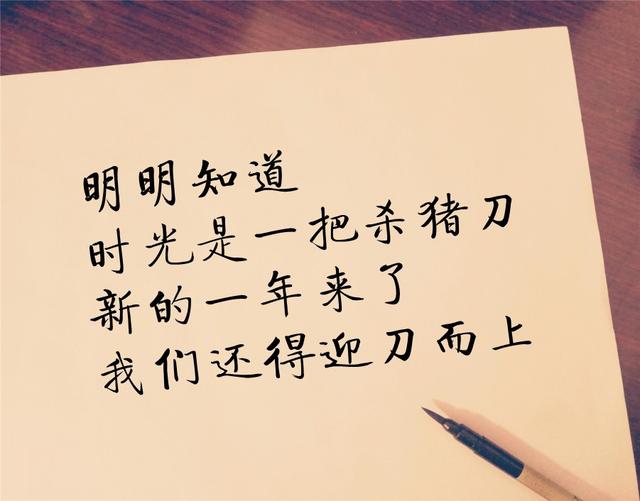 明明知道
时光是一把杀猪刀
新的一年来了
我们还得迎刀而上